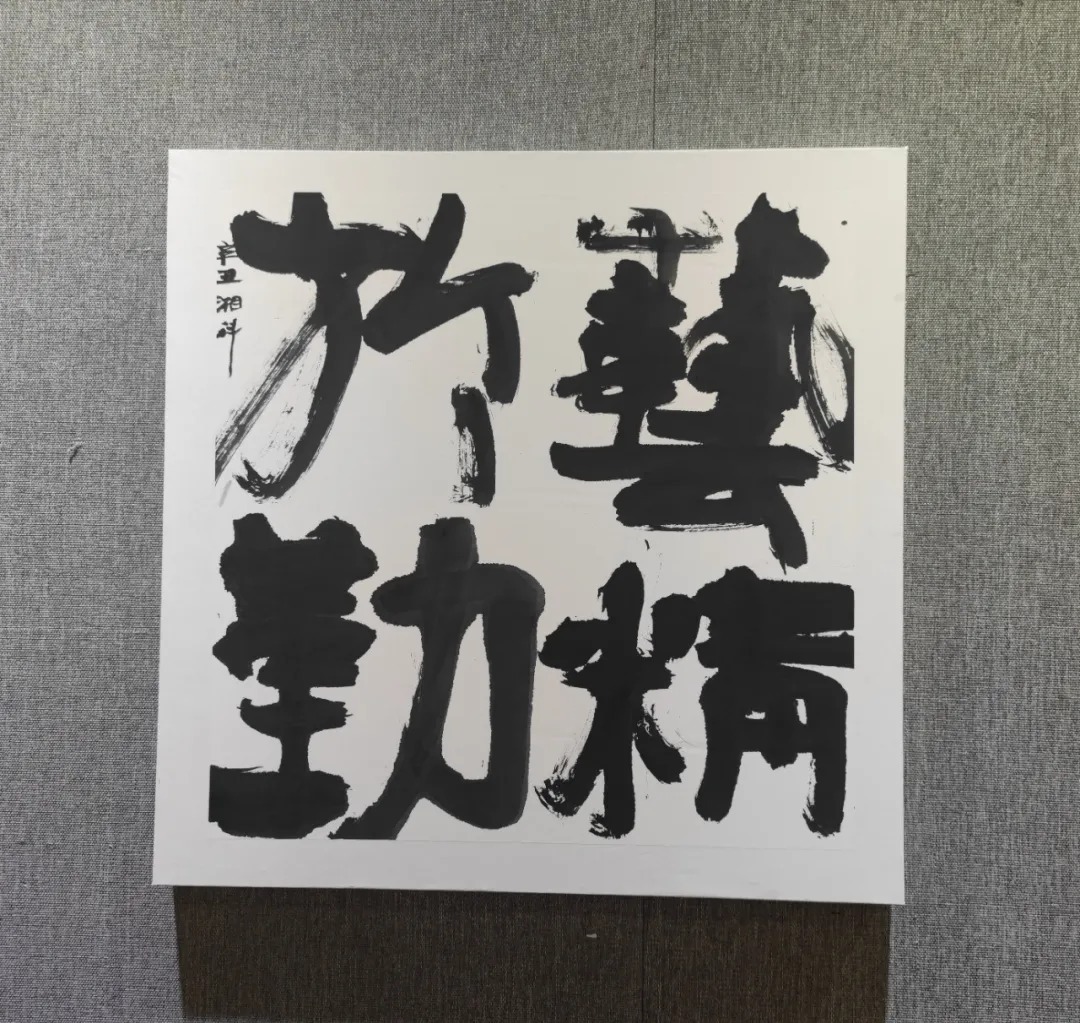 藝精
扵勤
辛丑湘科